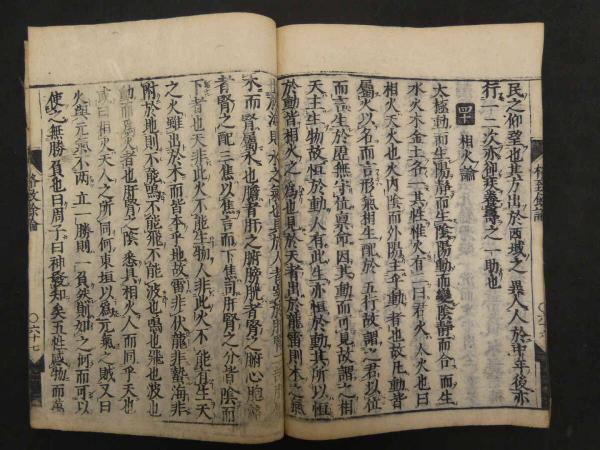 民之仰望也其方出於西域之異人人於中年後亦
行一二次亦卻疾養壽之一助也
四十 相火論
太極動而生陽靜而生陰陽動而變陰靜而合而生
水火木金土各一其性惟火有二曰君火人火也曰
相火天火也火內陰而外陽主乎動者也故凡動皆
屬火以名而言形氣相生配於五行故謂之君以位
而言生於虛無守位稟命因其動而可見故謂之相
天主生物故恒於動人有此生亦恒於動其所以恒
於動皆相火之為也見於天者出於龍雷則木之氣
出於海則水之氣也具於人者寄於肝腎二部肝屬
木而腎屬水也膽者肝之腑膀胱者腎之腑心胞絡
者腎之配三焦以焦言而下焦司肝腎之分皆陰而
下者也天非此火不能生物人非此火不能有生天
之火雖出於木而皆本乎地故雷非伏龍非蟄海非
附於地則不能鳴不能飛不能波也鳴也飛也波也
動而為火者也肝腎之陰悉具相火人而同乎天也
或曰相火天人之所同何東垣以為元氣之賊又曰
火與元氣不兩立一勝則一負然則如之何而可以
使之無勝負也曰周子曰神發知矣五性感物而萬
格致餘論
六十七